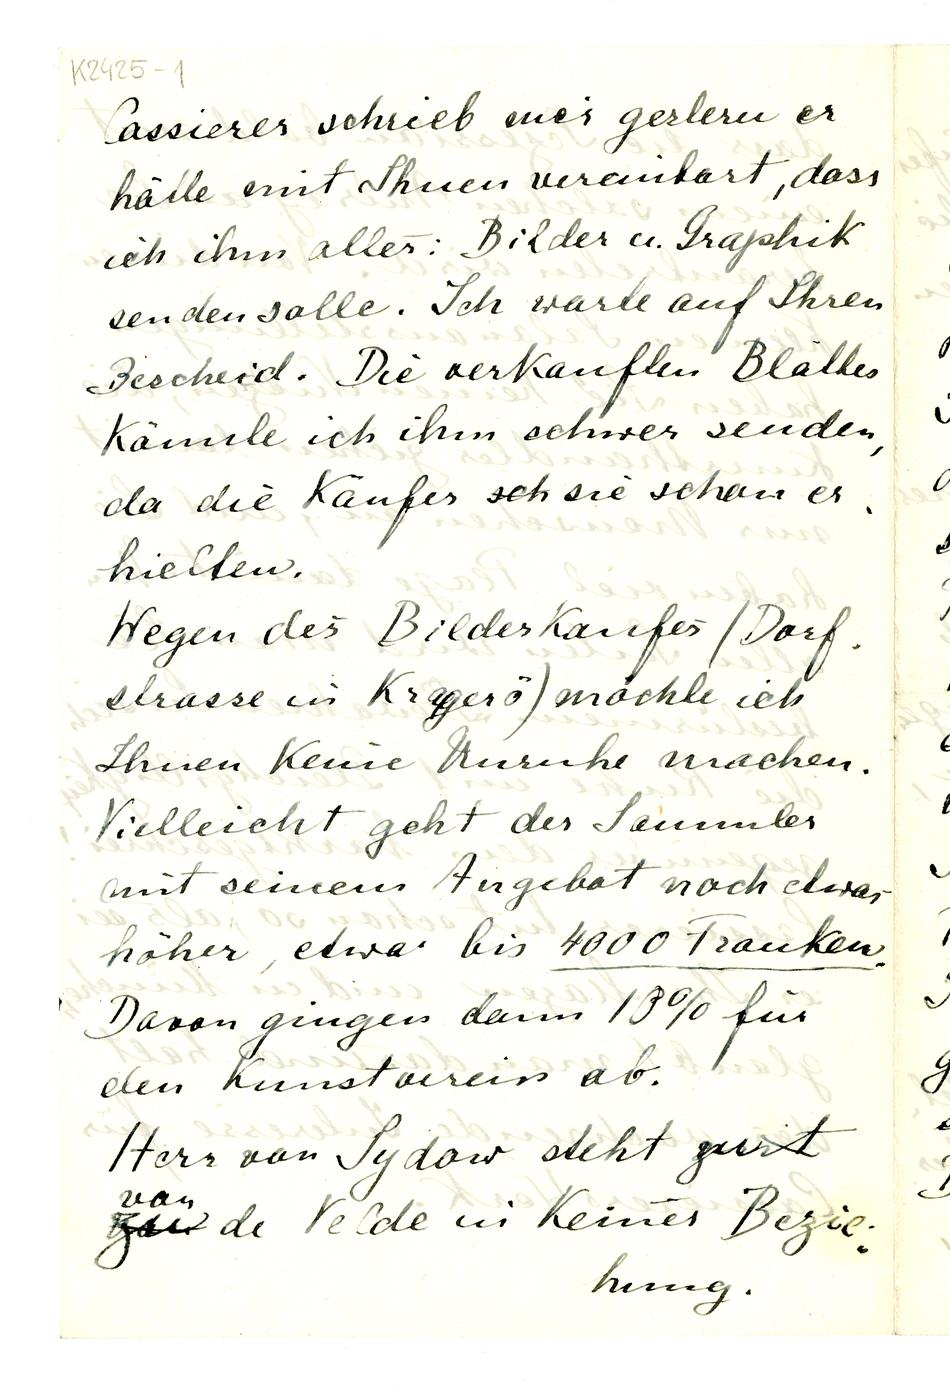 K2425-1
Cassierer schrieb mir gestern er
hätte mit Ihnen vereinbart, dass
ich ihm alles: Bilder u. Graphik
senden solle. Ich warte auf Ihren
Bescheid. Die verkauften Blätter
könnte ich ihm schwer senden,
da die Käufer sch sie schon er
hielten.
Wegen des Bilderkaufes (Dorf
strasse in Kragerö) möchte ich
Ihnen keine Unruhe machen.
Vielleicht geht der Sammler
mit seinem Angebot noch etwas
höher, etwa bis 4000 Franken.
Davon gingen dann 13% für
den Kunstverein ab.
Herr von Sydow steht zu
van
de Velde in keiner Bezie-
hung.